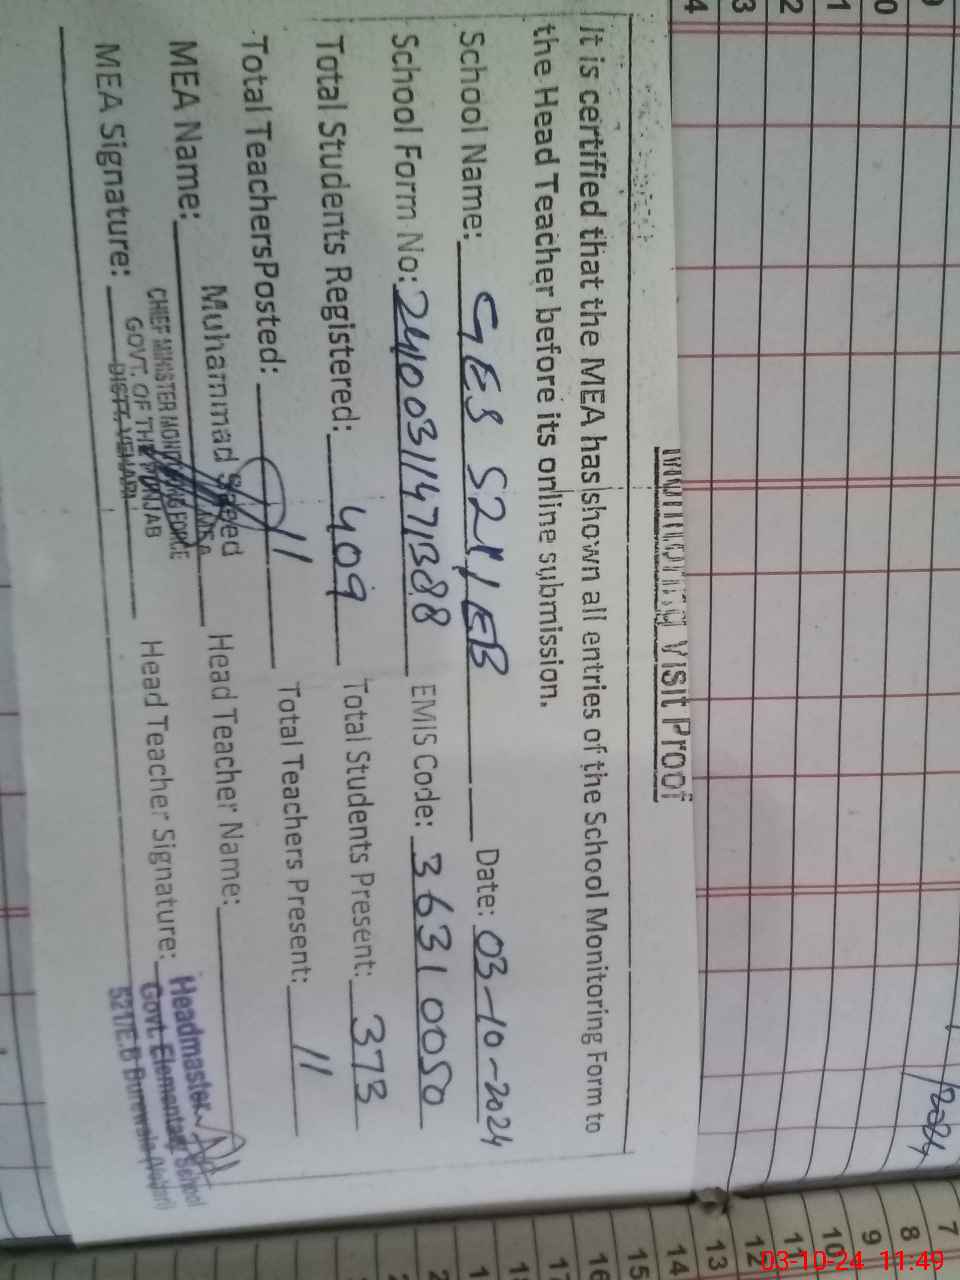 Monitoring Visit Proof
It is certified that the MEA has shown all entries of the School Monitoring Form to
the Head Teacher before its online submission.
School Name: GES 521/EB Date: 03-10-2024
School Form No: EMIS Code: 36310050
Total Students Registered: 409 Total Students Present: 373
Total TeachersPosted: 11 Total Teachers Present: 11
MEA Name: Head Teacher Name:
Muhammad Saeed
MEA
CHIEF MINISTER MONITORING FORCE
GOVT. OF THE PUNJAB
DISTT. VEHARI
MEA Signature: Head Teacher Signature:
Headmaster
Govt. Elementary School
521/E.B Burewala (Vehari)
4
3
2
1
0
9
/2024
7
8
9
10
11
12
13
14
15
16
03-10-24 11:49